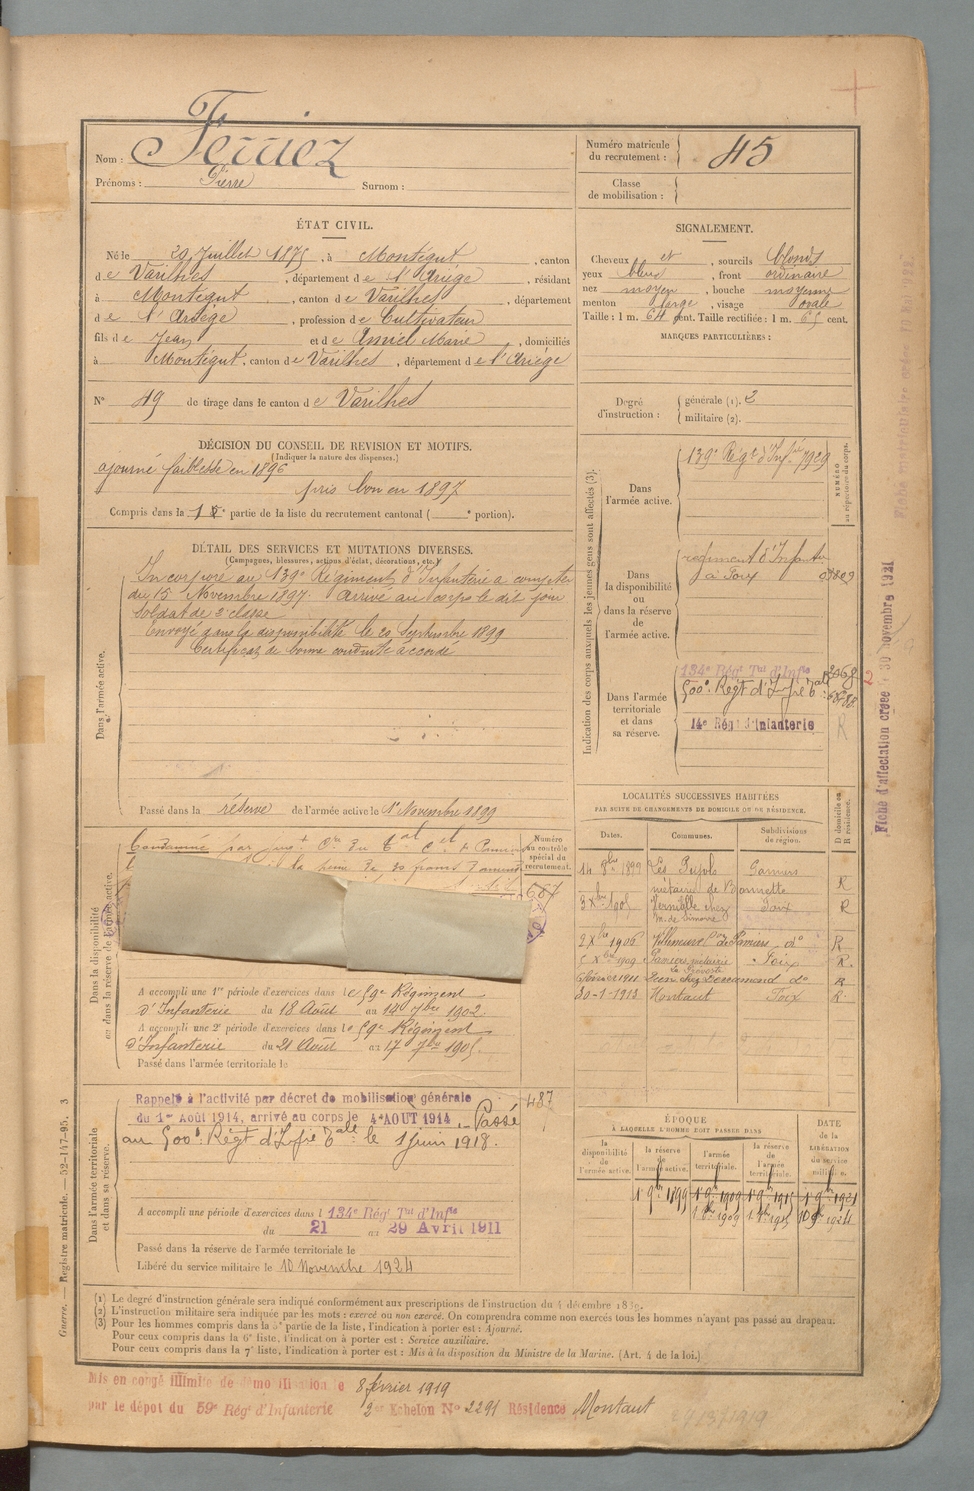 Nom : Ferriez
Prénoms : Pierre Surnom :
Numéro matricule du recrutement : 45
Classe de mobilisation :
ÉTAT CIVIL.
Né le 29 Juillet 1875, à Montégut, canton
de Varilhes, département de l'Ariège, résidant
à Montégut, canton de Varilhes, département
de l'Ariège, profession de Cultivateur
fils de Jean et de Amiel Marie, domiciliés
à Montégut, canton de Varilhes, département de l'Ariège
N° 49 de tirage dans le canton de Varilhes
SIGNALEMENT.
Cheveux et, sourcils blonds
yeux bleus, front ordinaire
nez moyen, bouche moyenne
menton large, visage ovale
Taille : 1 m. 64 cent. Taille rectifiée : 1 m. 65 cent.
MARQUES PARTICULIÈRES :
Degré d'instruction : générale (1). 2
militaire (2).
DÉCISION DU CONSEIL DE REVISION ET MOTIFS.
(Indiquer la nature des dispenses.)
ajourné faiblesse en 1896
pris bon en 1897
Compris dans la 1e partie de la liste du recrutement cantonal ( e portion).
DÉTAIL DES SERVICES ET MUTATIONS DIVERSES.
(Campagnes, blessures, actions d'éclat, décorations, etc.)
Dans l'armée active.
Incorporé au 139e Régiment d'Infanterie à compter
du 15 Novembre 1897. Arrivé au corps le dit jour
Soldat de 2e classe
Envoyé dans la disponibilité le 20 Septembre 1899
Certificat de bonne conduite accordé
Passé dans la réserve de l'armée active le 1er Novembre 1899
Indication des corps auxquels les jeunes gens sont affectés (3).
NUMÉRO au répertoire du corps.
Dans l'armée active.
139e Régt d'Infie 7929
Dans la disponibilité ou dans la réserve de l'armée active.
régiment d'Infanterie
à Foix
Dans l'armée territoriale et dans sa réserve.
134e Régt Tal d'Infie
500e Regt d'Infie Tale
14e Régt d'Infanterie R
Fiche d'affectation créée le 30 novembre 1921
LOCALITÉS SUCCESSIVES HABITÉES
PAR SUITE DE CHANGEMENTS DE DOMICILE OU DE RÉSIDENCE.
Dates. Communes. Subdivisions de région. D domicile ou R résidence.
14 8bre 1899 Les Pujols Pamiers
métairie de Bonnette R
3 Xbre 1905 Verniolle chez Foix R
2 Xbre 1906 Villeneuve de Pamiers do R
Xbre 1909 Pamiers métairie Foix R
1911 do R
30-1-1913 Montaut Foix R
Dans la disponibilité ou dans la réserve de l'armée active.
Numéro au contrôle spécial du recrutement.
Condamné par jugt
la peine de 30 francs d'amende
687
A accompli une 1re période d'exercices dans le 59e Régiment
d'Infanterie du 18 Août au 14 7bre 1902.
A accompli une 2e période d'exercices dans le 59e Régiment
d'Infanterie du 21 Août au 17 7bre 1905.
Passé dans l'armée territoriale le
Dans l'armée territoriale et dans sa réserve.
Rappelé à l'activité par décret de mobilisation générale 487
du 1er Août 1914, arrivé au corps le 4 AOUT 1914. Passé
au 500e Régt d'Infie Tale le 1 juin 1918.
A accompli une période d'exercices dans l 134e Régt Tal d'Infie
du 21 au 29 Avril 1911
Passé dans la réserve de l'armée territoriale le
Libéré du service militaire le 10 Novembre 1924
ÉPOQUE
À LAQUELLE L'HOMME DOIT PASSER DANS
DATE de la LIBÉRATION du service militaire.
la disponibilité de l'armée active. la réserve de l'armée active. l'armée territoriale. la réserve de l'armée territoriale.
1er 9bre 1899 1er 9bre 1909 1er 9bre 1915 1er 9bre 1921
1909 1915 10 9bre 1924
(1) Le degré d'instruction générale sera indiqué conformément aux prescriptions de l'instruction du 4 décembre 1889.
(2) L'instruction militaire sera indiquée par les mots : exercé ou non exercé. On comprendra comme non exercés tous les hommes n'ayant pas passé au drapeau.
(3) Pour les hommes compris dans la 5e partie de la liste, l'indication à porter est : Ajourné.
Pour ceux compris dans la 6e liste, l'indication à porter est : Service auxiliaire.
Pour ceux compris dans la 7e liste, l'indication à porter est : Mis à la disposition du Ministre de la Marine. (Art. 4 de la loi.)
Guerre. — Registre matricule. — 52-147-95. 3
Mis en congé illimité de démobilisation le 8 février 1919
par le dépot du 59e Régt d'Infanterie 2e Echelon N° 2291 Résidence Montaut